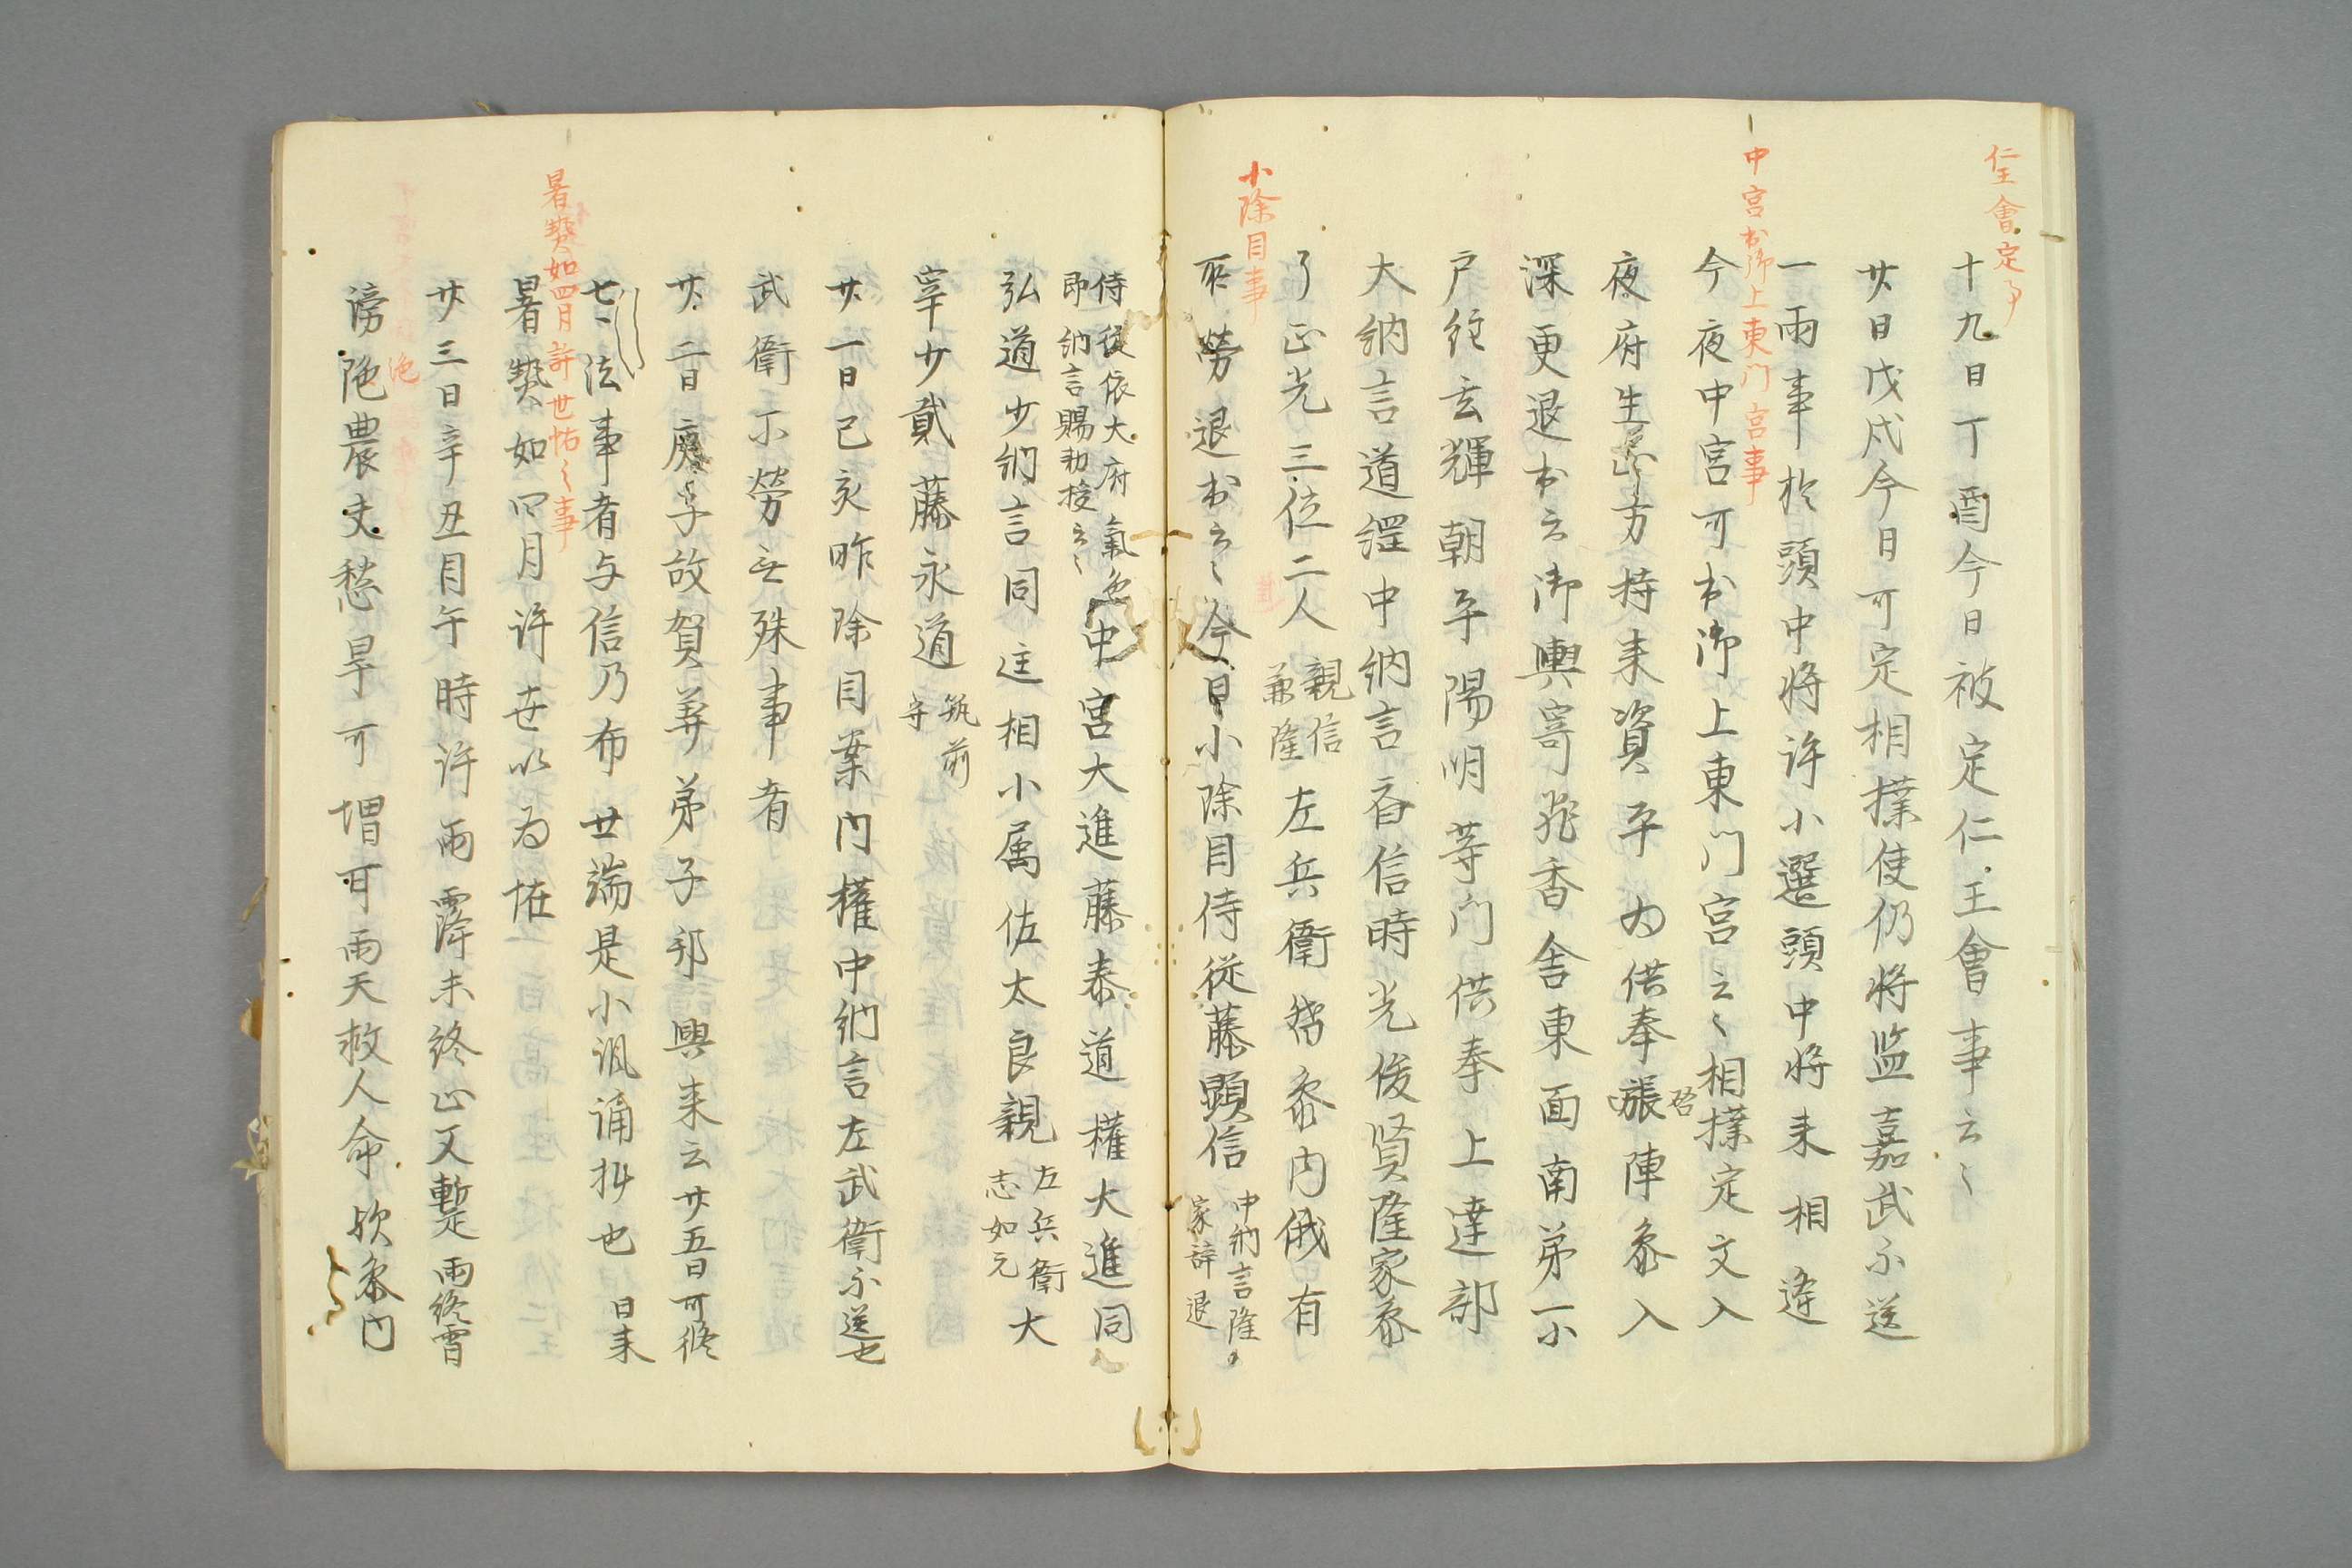 仁王會定事
十九日丁酉今日被定仁王會事云々
廿日戊戌今日可定相撲使仍将監嘉武示送
一両事於頭中将許小選頭中将来相逢
中宮出御上東门宮事
今夜中宮可出御上東门宮云々相撲定文入
夜府生方持来資平為供奉啓陣参入
深更退出云御輿寄飛香舎東面南第一小
戸経玄輝朝平陽明等门供奉上達部
大納言道綱中納言斉信時光俊賢隆家参
了正光三位二人親信兼隆左兵衛督参内俄有
小除目事
所労退出云々今日小除目侍従藤顕信中納言隆家辞退
侍従依大府氣色即納言賜勅授云々中宮大進藤泰道権大進同
弘道少納言同迬相小属佐太良親左兵衛志如元大
宰少貳藤永道筑前守
廿一日己亥昨除目案内權中納言左武衛示送也
武衛不労無殊事者
廿二日慶子故賀弟子邦興来云廿五日可修
七々法事者与信乃布廿端是小諷誦料也日来
暑熱如四月許世怗々事
暑熱如四月許世以為恠
廿三日辛丑月午時許雨降未終止又暫雨終宵
滂沲農夫愁旱可謂可雨天救人命欤参内